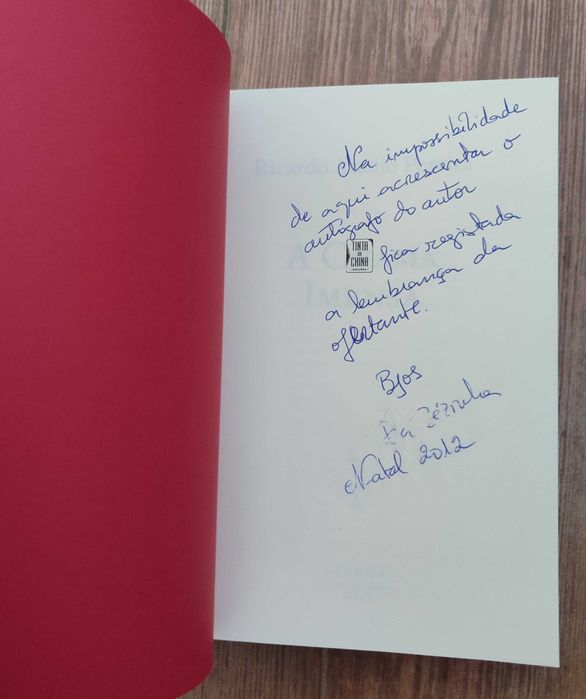 Na impossibilidade
de aqui acrescentar o
autógrafo do autor
TINTA DA CHINA
fica registada
a lembrança da
ofertante.
Bjos
Zézinha
Natal 2012
Ricardo
A